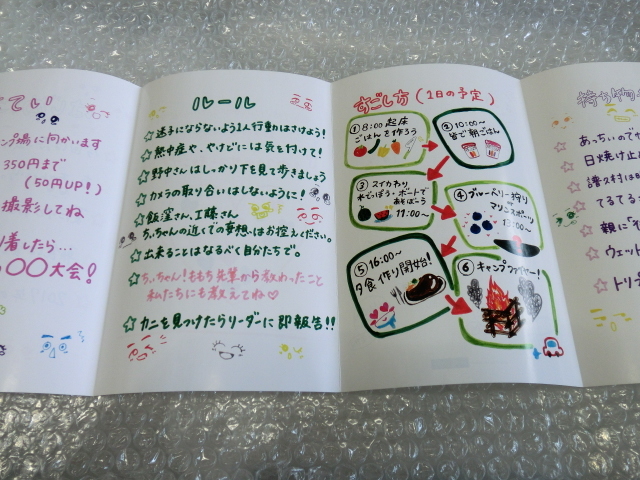 てい
ンプ場に向かいます
350円まで
(50円UP!)
撮影してね
着したら...
○○大会!
ルール
☆迷子にならないよう1人行動はさけよう!
☆熱中症や、やけどには気を付けて!
☆野中さんはしっかり下を見て歩きましょう
☆カメラの取り合いはしないように!
☆飯窪さん、工藤さん
ちぃちゃんの近くでの妄想はお控えください。
☆出来ることはなるべく自分たちで。
☆ちぃちゃん!ももち先輩から教わったこと
私たちにも教えてね♡
☆カニを見つけたらリーダーに即報告!!
すごし方(1日の予定)
①8:00起床
ごはんを作ろう
②10:00~
皆で朝ごはん
③スイカわり
水でっぽう・ボートで
あそぼう
11:00~
④ブルーベリー狩り
マリンスポーツ
13:00~
⑤16:00~
夕食作り開始!
⑥キャンプファイヤー!
持ち物
あっちぃので
日焼け止
譜久村は
てるてる
親に「そ
ウェット
トリ